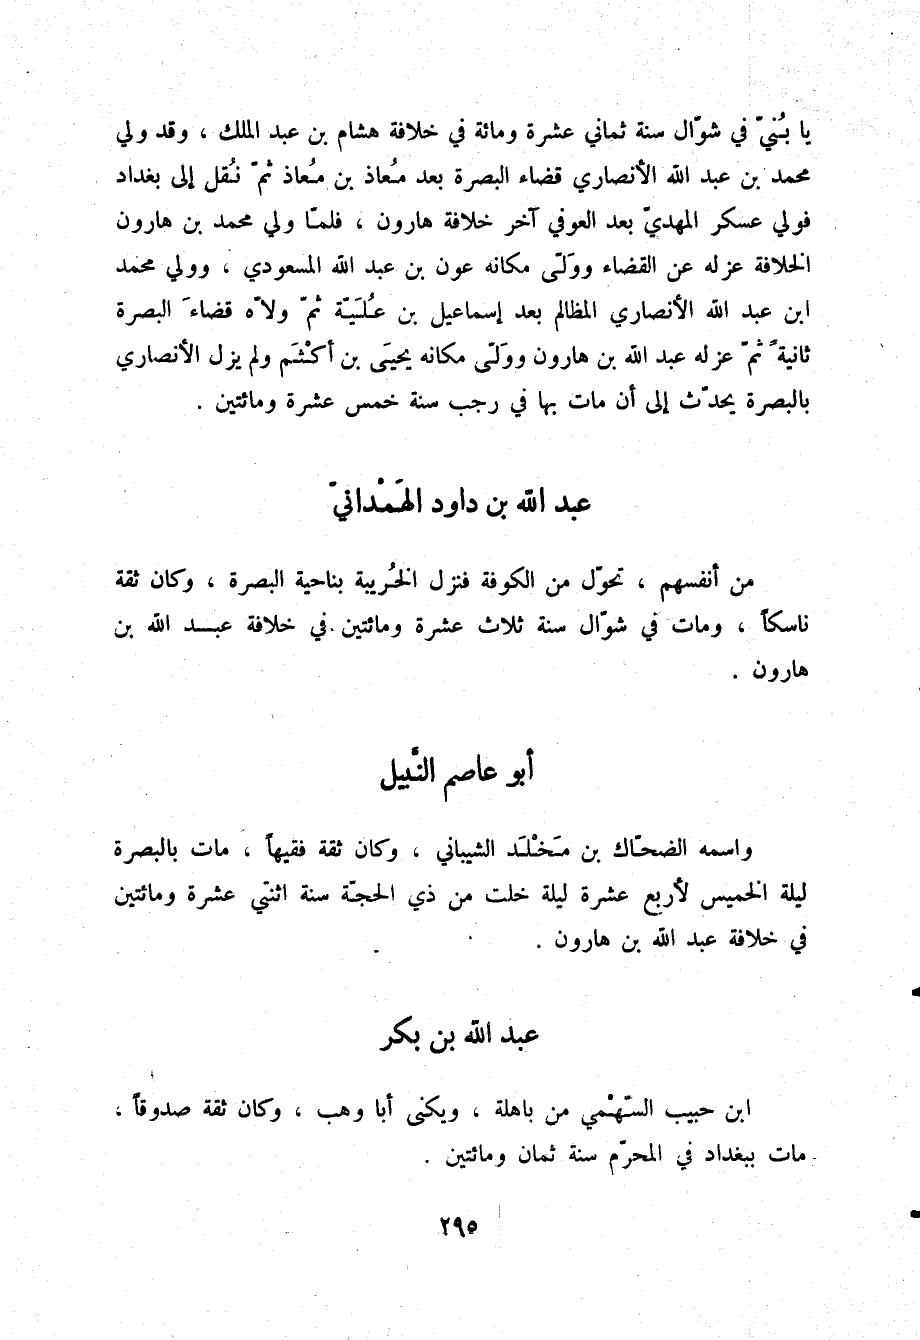 يا بُنيّ في شوّال سنة ثماني عشرة ومائة في خلافة هشام بن عبد الملك ، وقد ولي
محمد بن عبد الله الأنصاري قضاء البصرة بعد مُعاذ بن مُعاذ ثمّ نُقل إلى بغداد
فولي عسكر المهديّ بعد العوفي آخر خلافة هارون ، فلمّا ولي محمد بن هارون
الخلافة عزله عن القضاء وولّى مكانه عون بن عبد الله المسعودي ، وولي محمد
ابن عبد الله الأنصاري المظالم بعد إسماعيل بن عُلَيّة ثمّ ولاّه قضاءَ البصرة
ثانيةً ثمّ عزله عبد الله بن هارون وولّى مكانه يحيَى بن أكْثَم ولم يزل الأنصاري
بالبصرة يحدّث إلى أن مات بها في رجب سنة خمس عشرة ومائتين .
عبد الله بن داود الهَمْدانيّ
من أنفسهم ، تحوّل من الكوفة فنزل الخُريبة بناحية البصرة ، وكان ثقة
ناسكاً ، ومات في شوّال سنة ثلاث عشرة ومائتين في خلافة عبد الله بن
هارون .
أبو عاصم النَّبيل
واسمه الضحّاك بن مَخْلَد الشيباني ، وكان ثقة فقيهاً ، مات بالبصرة
ليلة الخميس لأربع عشرة ليلة خلت من ذي الحجّة سنة اثنتي عشرة ومائتين
في خلافة عبد الله بن هارون .
عبد الله بن بكر
ابن حبيب السّهْمي من باهلة ، ويكنى أبا وهب ، وكان ثقة صدوقاً ،
مات ببغداد في المحرّم سنة ثمان ومائتين .
٢٩٥